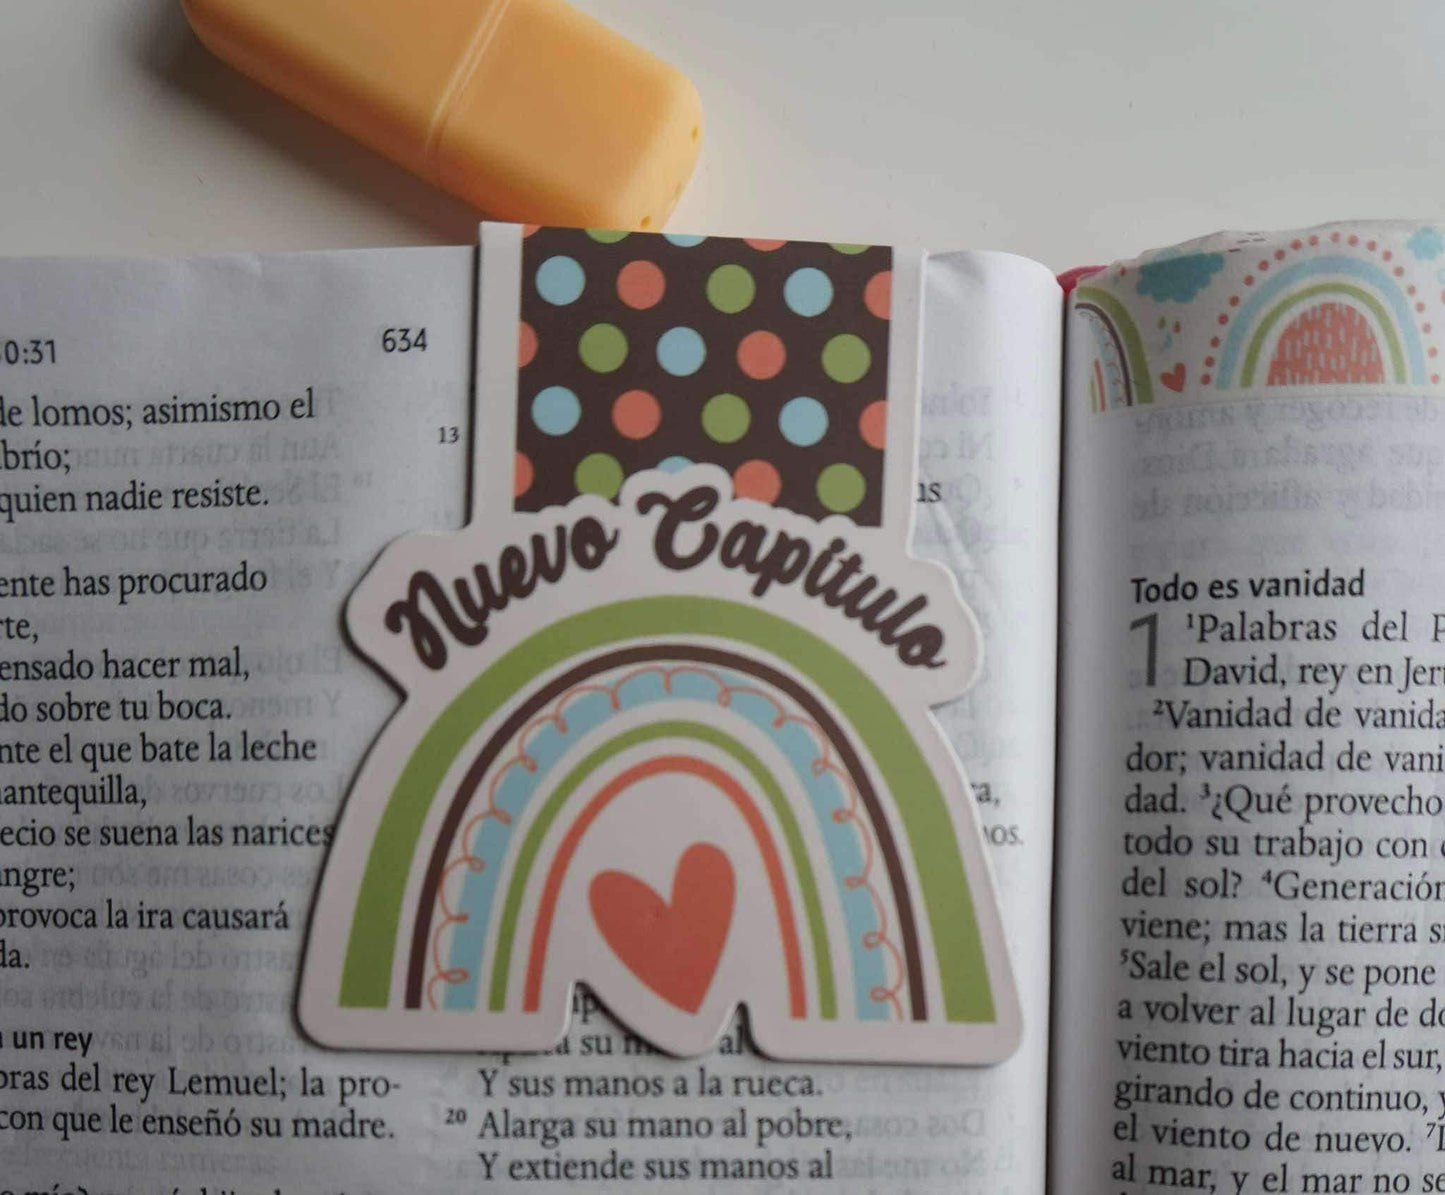 0:31
634
de lomos; asimismo el
brío;
quien nadie resiste.
ente has procurado
rte,
ensado hacer mal,
do sobre tu boca.
nte el que bate la leche
antequilla,
ecio se suena las narices
ngre;
provoca la ira causará
da.
un rey
bras del rey Lemuel; la pro-
con que le enseñó su madre.
13
Nuevo Capítulo
a,
os.
su al
Y sus manos a la rueca.
20 Alarga su mano al pobre,
Y extiende sus manos al
Todo es vanidad
1 1Palabras del P
David, rey en Jer
2Vanidad de vanida
dor; vanidad de vani
dad. 3¿Qué provecho
todo su trabajo con
del sol? 4Generación
viene; mas la tierra si
5Sale el sol, y se pone
a volver al lugar de do
viento tira hacia el sur,
girando de continuo, y
el viento de nuevo. 7
al mar, y el mar no se